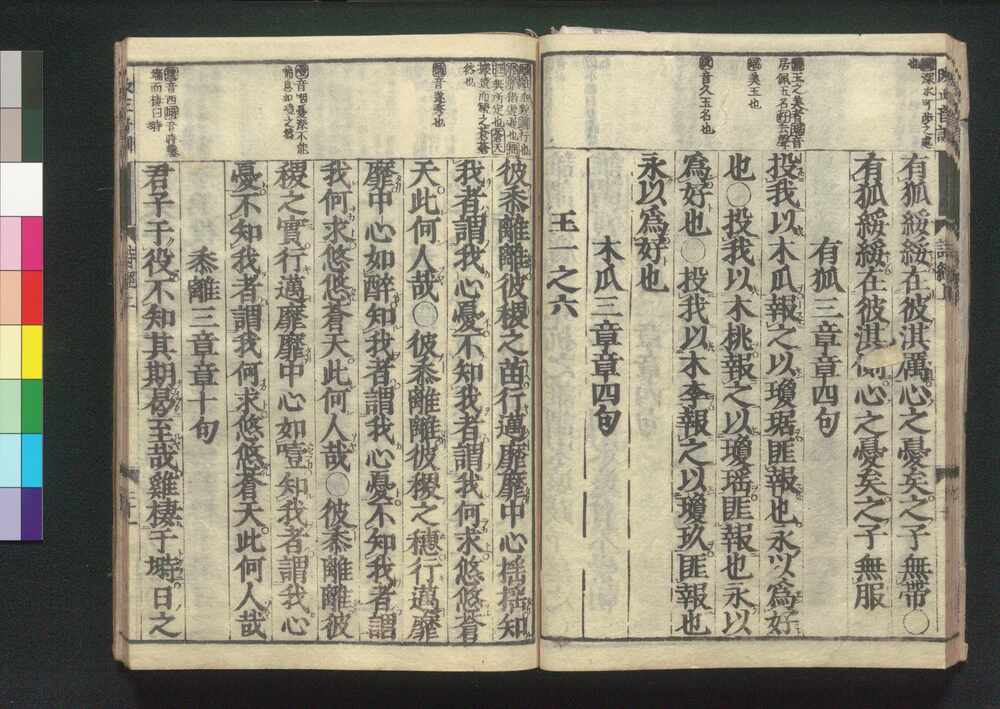 有狐綏綏在彼淇厲心之憂矣之子無帶〇
有狐綏綏在彼淇側心之憂矣之子無服
有狐三章章四句
投我以木瓜報之以瓊琚匪報也永以爲好
也〇投我以木桃報之以瓊瑤匪報也永以
爲好也〇投我以木李報之以瓊玖匪報也
永以爲好也
木瓜三章章四句
王一之六
彼黍離離彼稷之苗行邁靡靡中心搖搖知
我者謂我心憂不知我者謂我何求悠悠蒼
天此何人哉〇彼黍離離彼稷之穗行邁靡
靡中心如醉知我者謂我心憂不知我者謂
我何求悠悠蒼天此何人哉〇彼黍離離彼
稷之實行邁靡靡中心如噎知我者謂我心
憂不知我者謂我何求悠悠蒼天此何人哉
黍離三章章十句
君子于役不知其期曷至哉雞棲于塒日之
深水可涉之處
也
玉之美者
居佩玉名
美玉也
音久玉名也
音遂秀也
音西
音時鑿
墻而棲曰塒
詩經